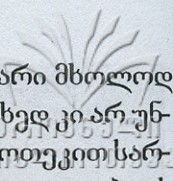 არი მხოლოდ
ხედ კი არ უნ-
ოთეკით სარ-